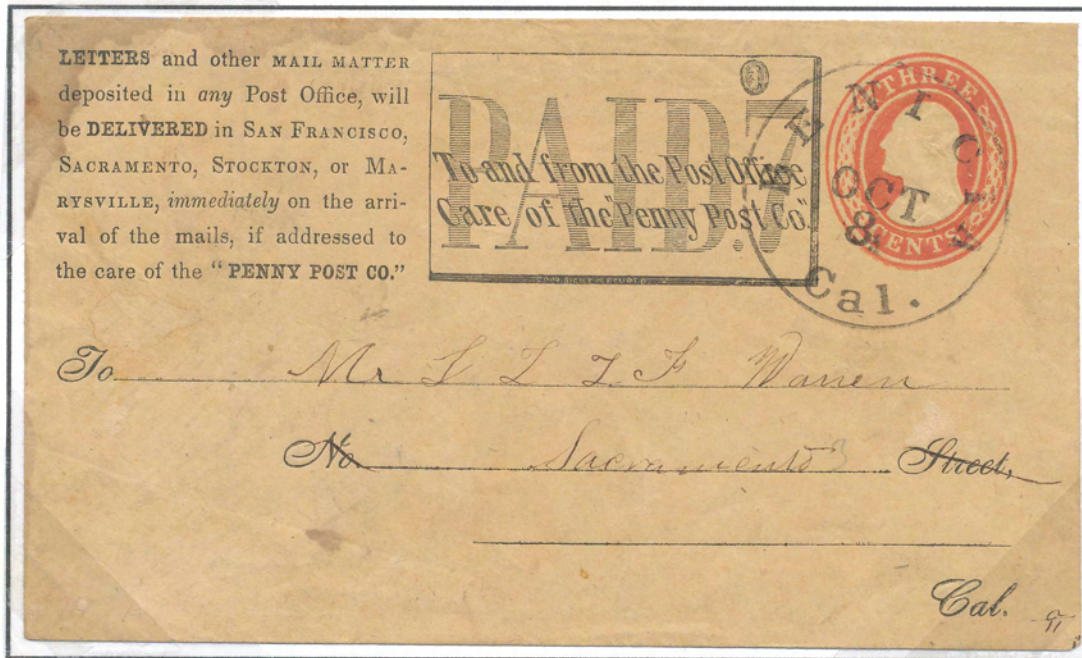 LETTERS and other MAIL MATTER
deposited in any Post Office, will
be DELIVERED in SAN FRANCISCO,
SACRAMENTO, STOCKTON, or MA-
RYSVILLE, immediately on the arri-
val of the mails, if addressed to
the care of the "PENNY POST CO."
PAID.7
To and from the Post Office
Care of the "Penny Post Co."
THREE
CENTS
BENICIA
OCT
8
Cal.
To Mr L L F Warren
No Sacramento Street,
Cal.